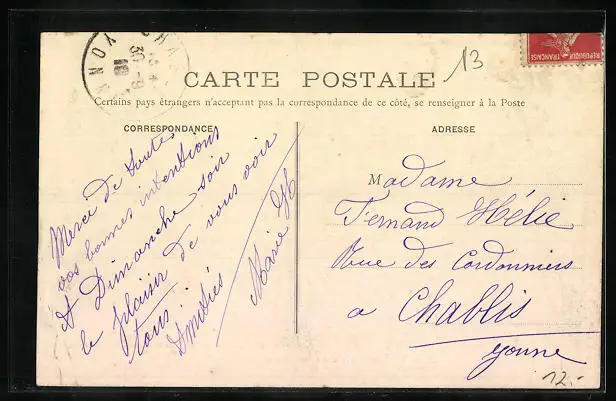 CARTE POSTALE
Certains pays étrangers n'acceptant pas la correspondance de ce côté, se renseigner à la Poste
CORRESPONDANCE
ADRESSE
13
REPUBLIQUE FRANÇAISE
CHA
30 -9
10
YONN
Merci de toutes
vos bonnes intentions
A Dimanche soir
le plaisir de vous voir
tous.
Amitiés
Marie H
Madame
Fernand Hélie
Rue des Cordonniers
a Chablis
Yonne
12.-